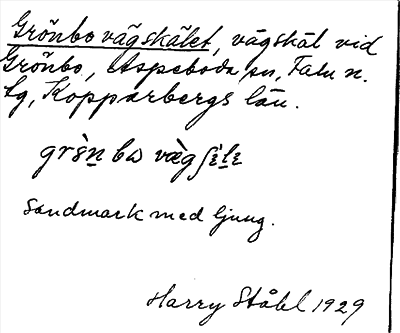 Grönbo vägskälet, vägskäl vid
Grönbo, Aspeboda sn, Falu n.
tg, Kopparbergs län.
Sandmark med ljung.
Harry Ståhl 1929